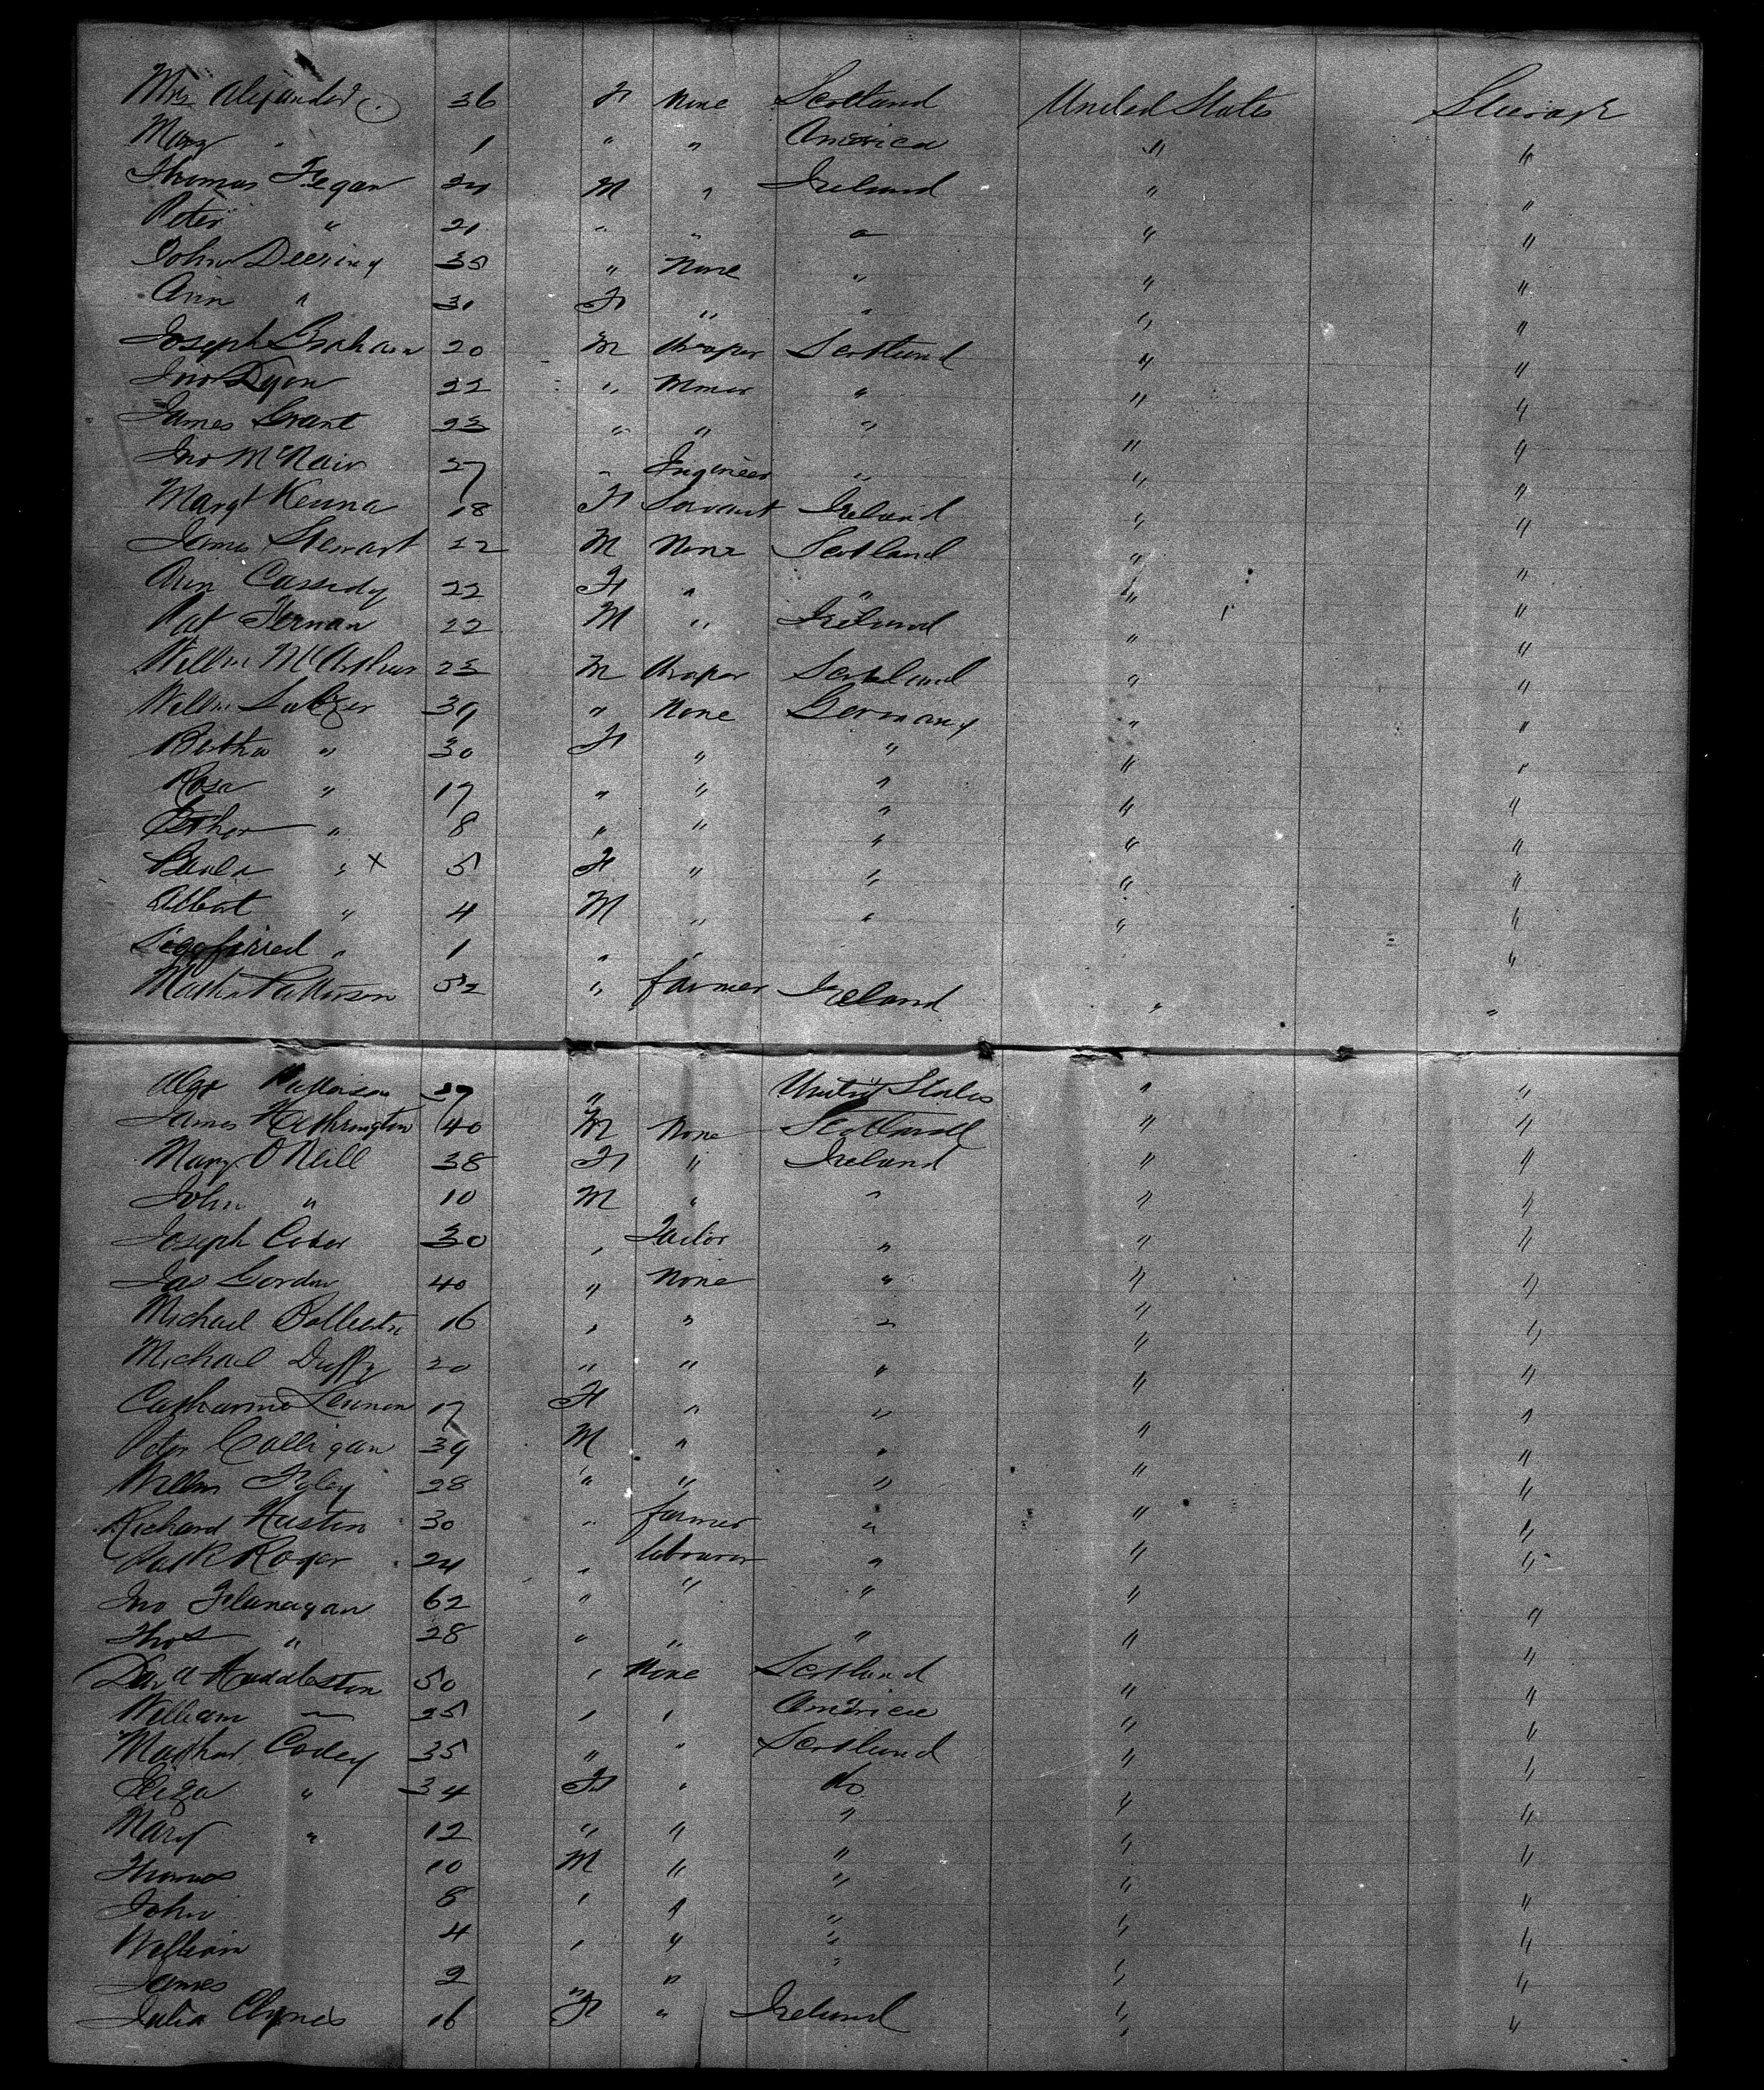 Mrs Alexander 36 F None Scotland United States Steerage
Mary " 1 " " America " "
Thomas Fegan 24 M " Ireland " "
Peter " 21 " " " " "
John Deering 35 " None " " "
Ann " 31 F " " " "
Joseph Graham 20 M draper Scotland " "
Jno Dyon 22 " Miner " " "
James Grant 23 " " " " "
Jno McNair 27 " Engineer " " "
Margt Kenna 18 F Servant Ireland " "
James Stewart 22 M None Scotland " "
Ann Cassidy 22 F " " " "
Pat Ternan 22 M " Ireland " "
Willm McArthur 23 M draper Scotland " "
Willm Salzer 39 " None Germany " "
Bertha " 30 F " " " "
Rosa " 17 " " " " "
Esther " 8 " " " " "
Beula " x 5 F " " " "
Albert " 4 M " " " "
Siegfried " 1 " " "
Patterson 52 " farmer Ireland " "
Alex Patterson 27 " United States " "
James Hethrington 40 M None Scotland " "
Mary O'Neill 38 F " Ireland " "
John " 10 M " " " "
Joseph Coder 30 " Tailor " " "
Jas Gordon 40 " None " " "
Michael 16 " " " " "
Michael Duffy 20 " " " " "
Catharine Lennon 17 F " " " "
Peter Colligan 39 M " " " "
Willm Foley 28 " " " " "
Richard Huston 30 " farmer " " "
Patk Roger 24 " labourer " " "
Jno Flanagan 62 " " " " "
Thos " 28 " " " " "
David Huddleston 50 " None Scotland " "
William — 25 " " America " "
Codey 35 " " Scotland " "
Eliza " 34 F " do " "
Mary " 12 " " " " "
Thomas 10 M " " " "
John 8 " " " " "
William 4 " " " " "
James 2 " " " " "
Julia Clynes 16 F " Ireland " "